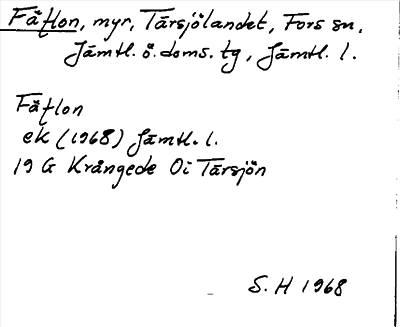 Fäflon, myr, Tärsjölandet, Fors sn,
Jämtl. ö. doms. tg, Jämtl. l.
Fäflon
ek (1968) Jämtl. l.
19 G Krångede Oi Tärsjön
S. H 1968